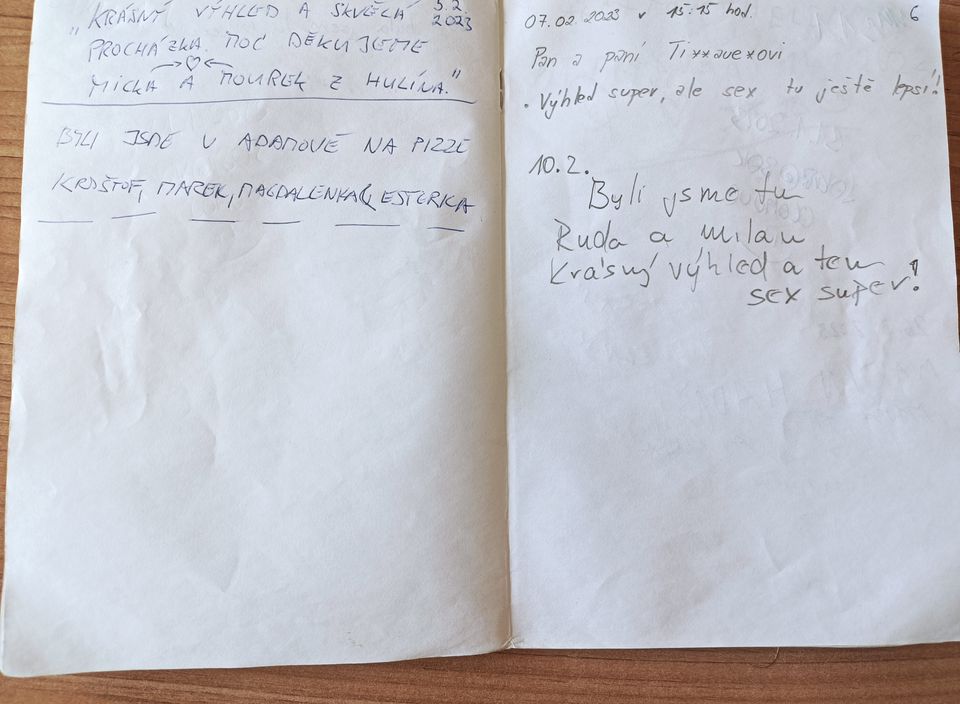 „KRÁSNÝ VÝHLED A SKVĚLÁ 5.2.
2023
PROCHÁZKA. MOC DĚKUJEME
MICKA A MOUREK Z HULÍNA."
BYLI JSME V ADAMOVĚ NA PIZZE
KRYŠTOF, MAREK, MAGDALENKA, ESTERKA
07.02.2023 v 15:15 hod.
6
Pan a paní Ti**ave*ovi
. Výhled super, ale sex tu ještě lepsí!
10.2.
Byli jsme tu
Ruda a milan
Krásný výhled a ten
sex super!